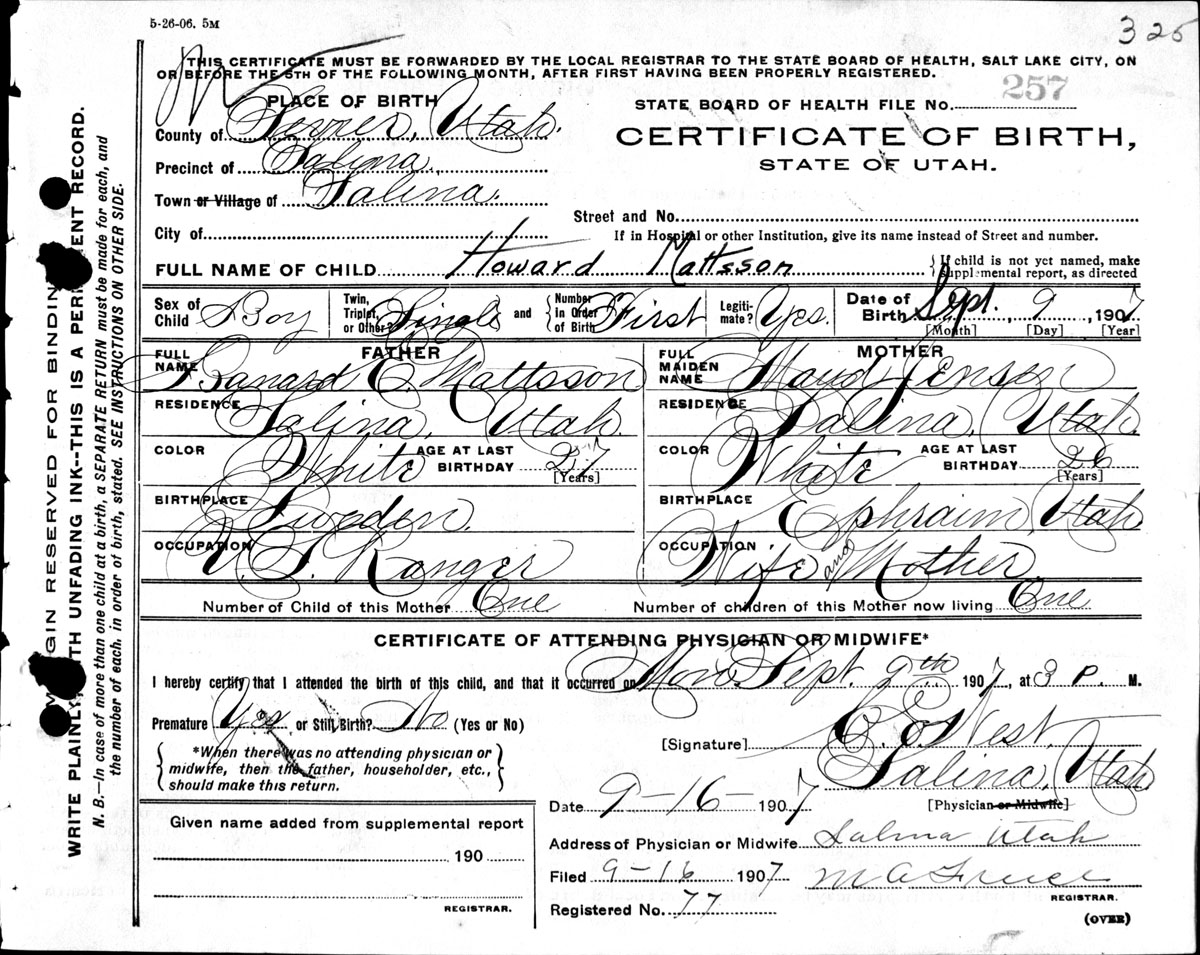 5-26-06. 5M
325
THIS CERTIFICATE MUST BE FORWARDED BY THE LOCAL REGISTRAR TO THE STATE BOARD OF HEALTH, SALT LAKE CITY, ON
OR BEFORE THE 5TH OF THE FOLLOWING MONTH, AFTER FIRST HAVING BEEN PROPERLY REGISTERED.
PLACE OF BIRTH
County of Sevier, Utah.
Precinct of Salina,
Town or Village of Salina.
City of
STATE BOARD OF HEALTH FILE NO. 257
CERTIFICATE OF BIRTH,
STATE OF UTAH.
Street and No.
If in Hospital or other Institution, give its name instead of Street and number.
FULL NAME OF CHILD Howard Mattsson
If child is not yet named, make
supplemental report, as directed
Sex of Child Boy
Twin, Triplet, or Other? Single and Number in Order of Birth First
Legitimate? Yes.
Date of Birth Sept. 9, 1907
[Month] [Day] [Year]
FATHER
FULL NAME Banard E. Mattsson
RESIDENCE Salina, Utah.
COLOR White AGE AT LAST BIRTHDAY 27
[Years]
BIRTHPLACE Sweden.
OCCUPATION U. S. Ranger
MOTHER
FULL MAIDEN NAME Maud Jensen
RESIDENCE Salina, Utah.
COLOR White AGE AT LAST BIRTHDAY 26
[Years]
BIRTHPLACE Ephraim, Utah
OCCUPATION Wife and Mother
Number of Child of this Mother One
Number of children of this Mother now living One
CERTIFICATE OF ATTENDING PHYSICIAN OR MIDWIFE*
I hereby certify that I attended the birth of this child, and that it occurred on Mon. Sept. 9th 1907, at 3 P. M.
Premature Yes or Still Birth? No (Yes or No)
*When there was no attending physician or
midwife, then the father, householder, etc.,
should make this return.
[Signature] C. E. West.
Salina, Utah
[Physician or Midwife]
Date 9-16-1907
Given name added from supplemental report
190
REGISTRAR.
Address of Physician or Midwife Salina Utah
Filed 9-16 1907
M A
REGISTRAR.
Registered No. 77
(OVER)
MARGIN RESERVED FOR BINDING
WRITE PLAINLY WITH UNFADING INK--THIS IS A PERMANENT RECORD.
N. B.—In case of more than one child at a birth, a SEPARATE RETURN must be made for each, and
the number of each, in order of birth, stated. SEE INSTRUCTIONS ON OTHER SIDE.